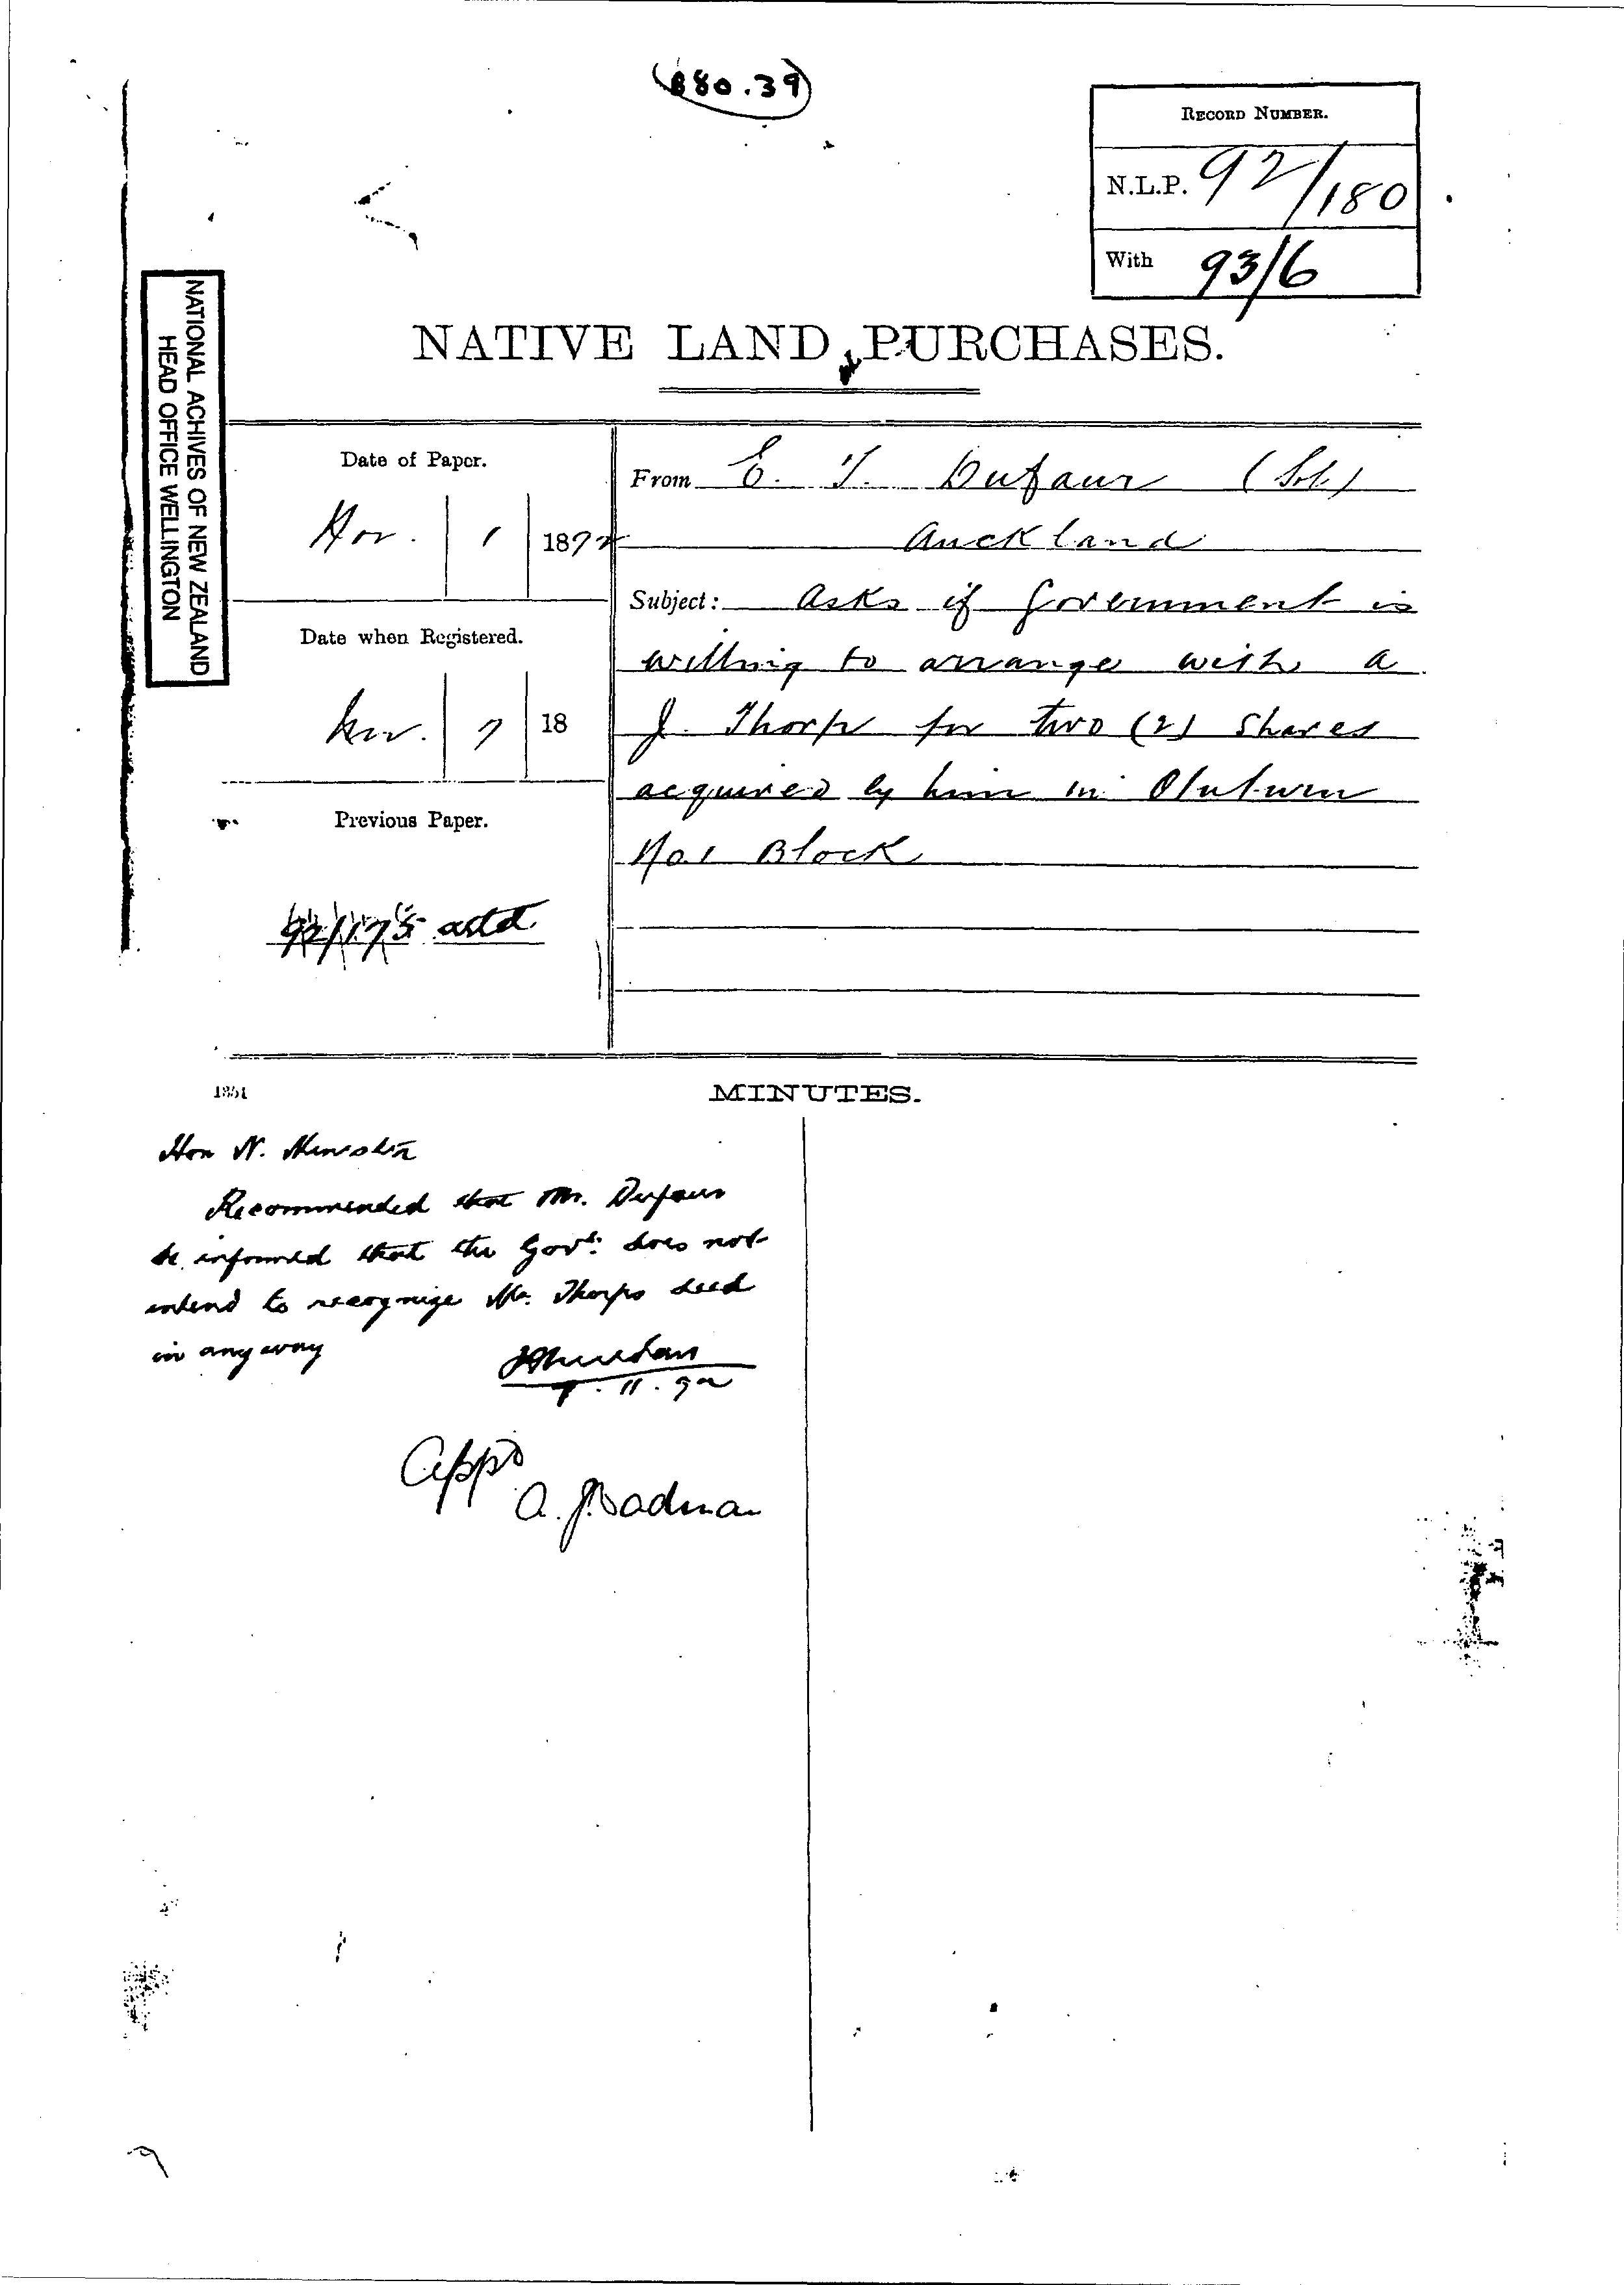 880.39
RECORD NUMBER.
N.L.P. 92/180
With 93/6
NATIONAL ACHIVES OF NEW ZEALAND
HEAD OFFICE WELLINGTON
NATIVE LAND PURCHASES.
Date of Paper.
Nov. 1 1892
Date when Registered.
Nov. 7 18
Previous Paper.
92/175 attd
From E. T. Dufaur (Sol.)
Auckland
Subject: Asks if Government is
willing to arrange with a
J. Thorp for two (2) shares
acquired by him in
No 1 Block
1351
MINUTES.
Hon N. Minister
Recommended that Mr. Dufaur
be informed that the Govt. does not
intend to recognize Mr. Thorps deed
in any way
7.11.92
Appd
A. J. Cadman